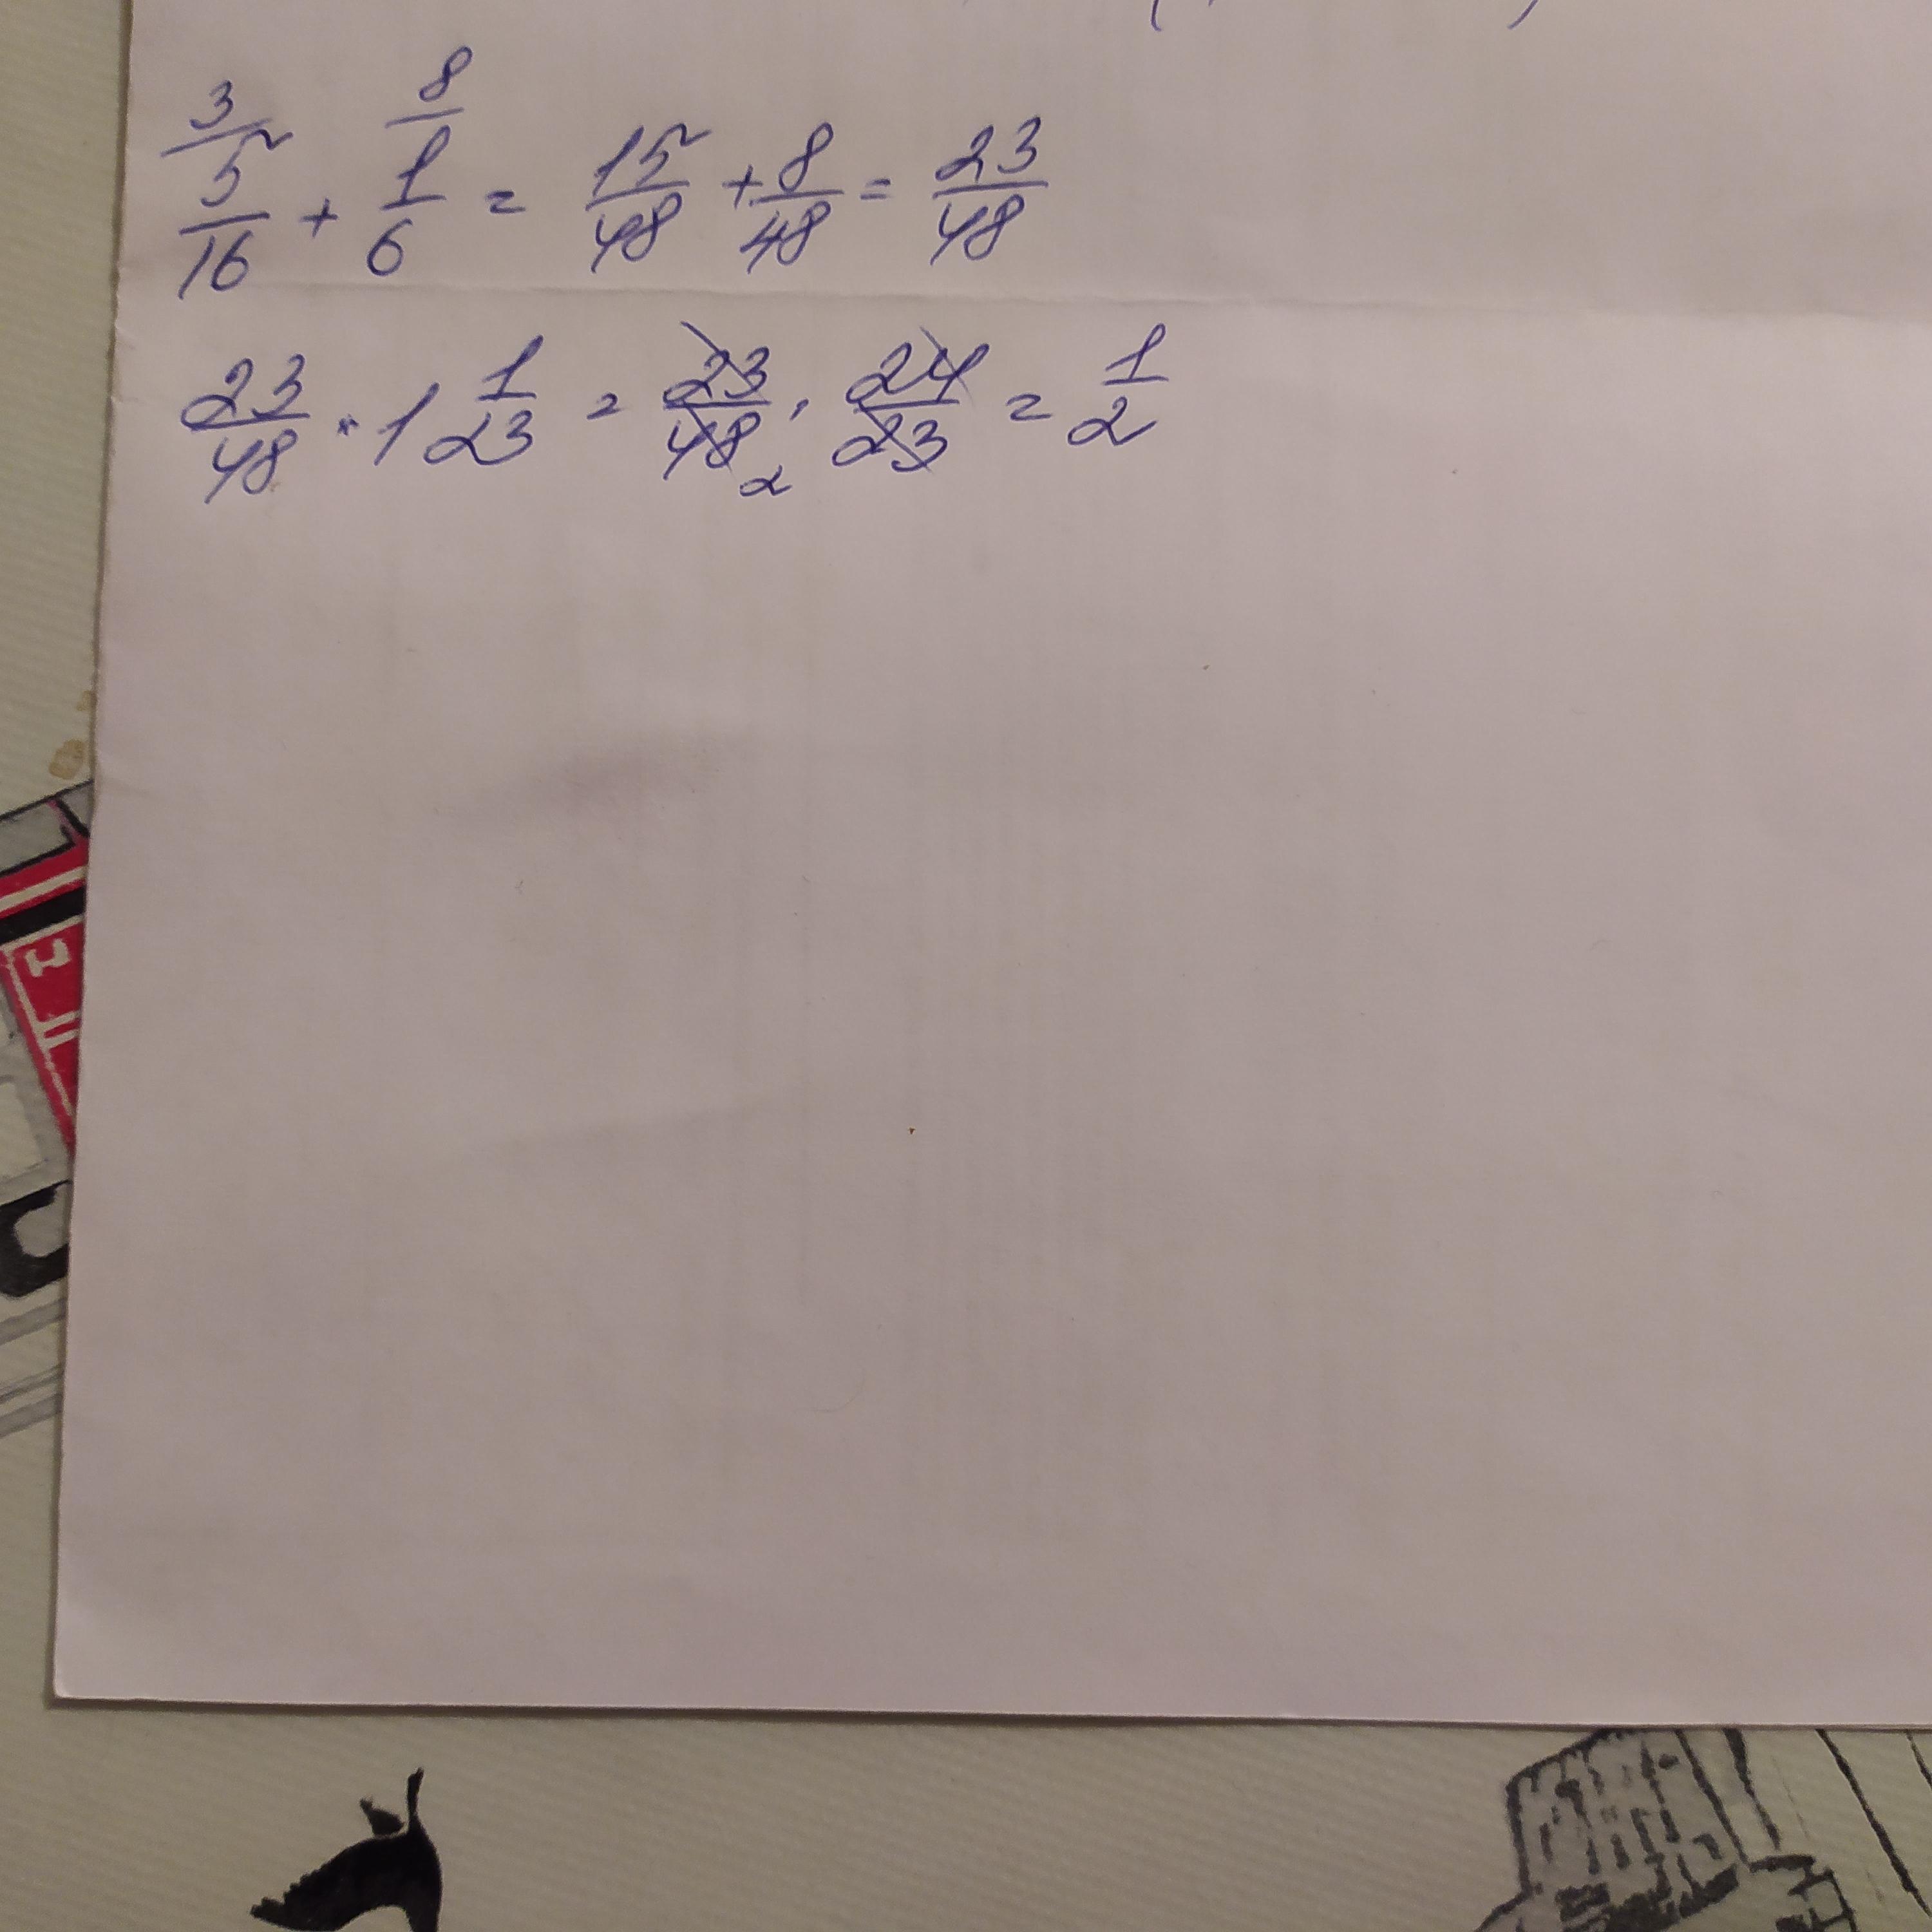 3 8
5/16 + 1/6 = 15/48 + 8/48 = 23/48
23/48 · 1 1/23 = 23/48 2 · 24/23 = 1/2